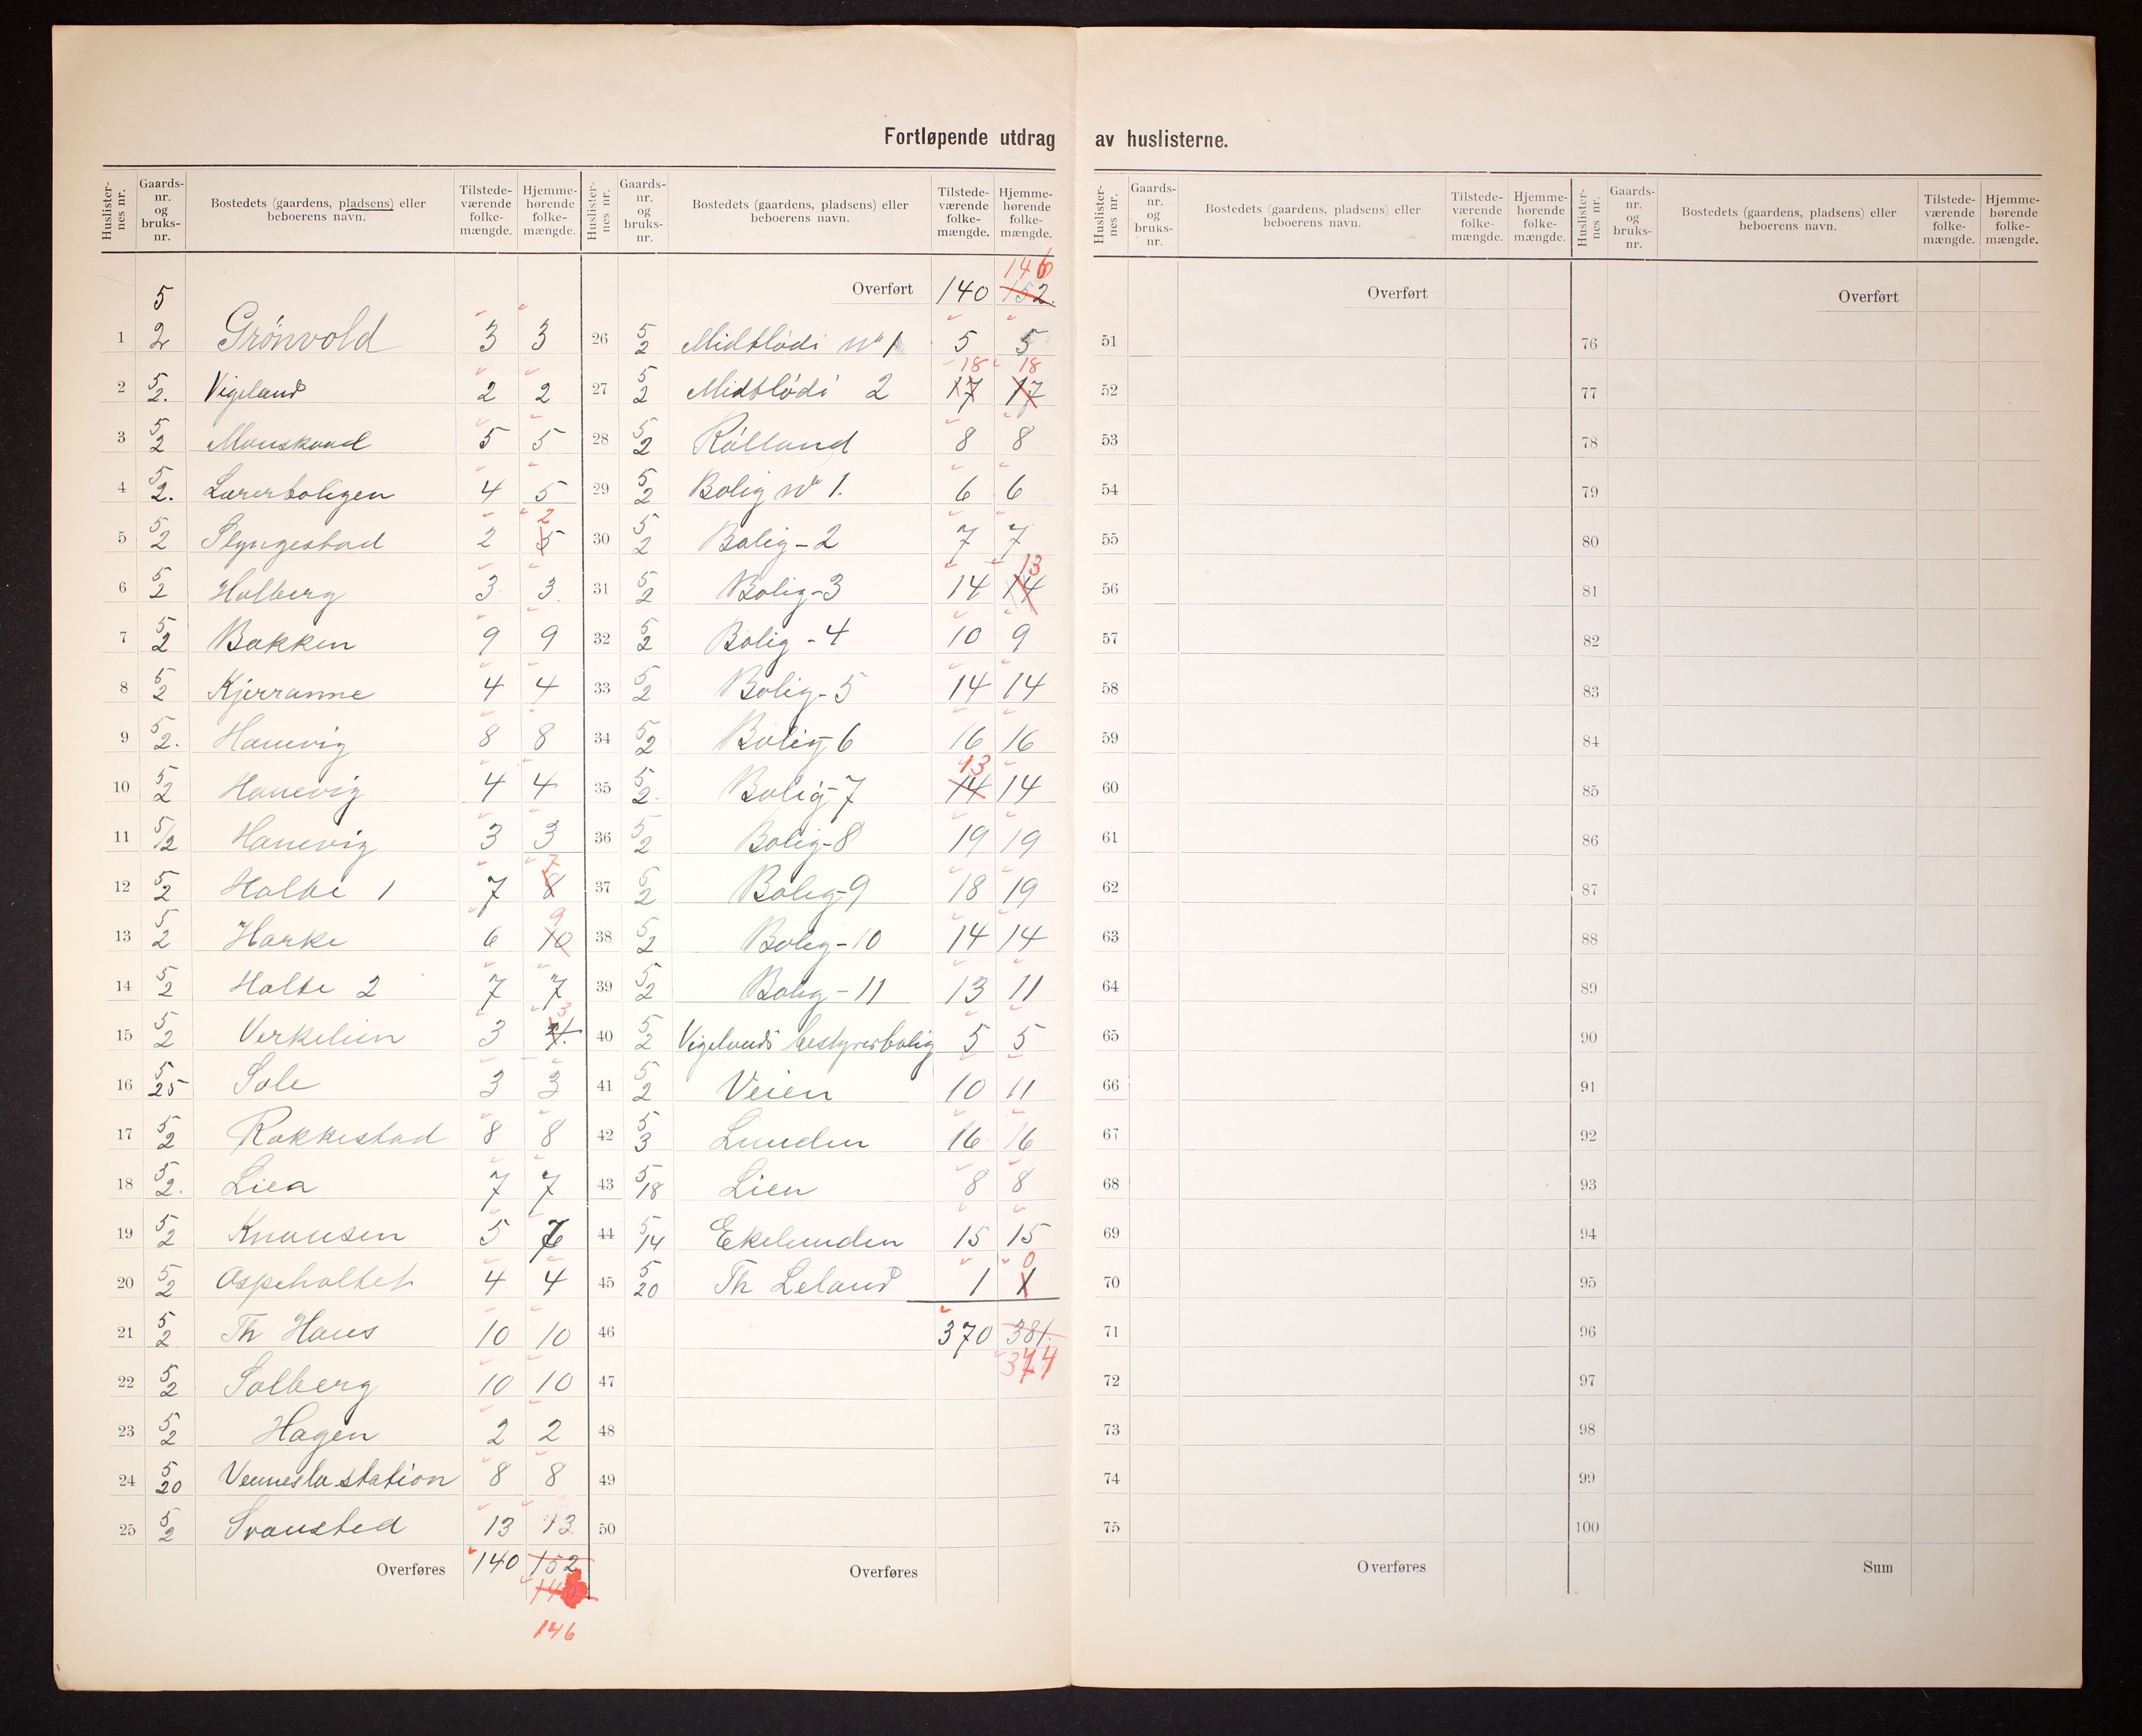 Fortløpende utdrag av huslisterne.
Huslister-nes nr. Gaards-nr. og bruks-nr. Bostedets (gaardens, pladsens) eller beboerens navn. Tilstede-værende folke-mængde. Hjemme-hørende folke-mængde.
1 5 2 Grönvold 3 3
2 5 2. Vigeland 2 2
3 5 2 5 5
4 5 2. Lærerboligen 4 5
5 5 2 Slyngestad 2 5 2
6 5 2 Holberg 3 3.
7 5 2 Bakken 9 9
8 5 2 Kjerranne 4 4
9 5 2. Hanevig 8 8
10 5 2 Hanevig 4 4
11 5/2 Hanevig 3 3
12 5 2 Holte 1 7 8 7
13 5 2 Harke 6 10 9
14 5 2 Holte 2 7 7
15 5 2 Verkelien 3 4. 3
16 5 25 Sole 3 3
17 5 2 Rakkestad 8 8
18 5 2. Liea 7 7
19 5 2 Knausen 5
20 5 2 Aspeholtet 4 4
21 5 2 Th Haus 10 10
22 5 2 Solberg 10 10
23 5 2 Hagen 2 2
24 5 20 Vennesla station 8 8
25 5 2 Svansted 13 13
Overføres 140 152
146
Huslister-nes nr. Gaards-nr. og bruks-nr. Bostedets (gaardens, pladsens) eller beboerens navn. Tilstede-værende folke-mængde. Hjemme-hørende folke-mængde.
146
Overført 140 152.
26 5 2 Midtlödi No 1 5 5
27 5 2 Midtlödi 2 17 18 17 18
28 5 2 Rålland 8 8
29 5 2 Bolig No 1. 6 6
30 5 2 Bolig - 2 7 7
31 5 2 Bolig - 3 14 14 13
32 5 2 Bolig - 4 10 9
33 5 2 Bolig - 5 14 14
34 5 2 Bolig - 6 16 16
35 5 2. Bolig - 7 14 13 14
36 5 2 Bolig - 8 19 19
37 5 2 Bolig - 9 18 19
38 5 2 Bolig - 10 14 14
39 5 2 Bolig - 11 13 11
40 5 2 Vigelands bestyrerbolig 5 5
41 5 2 Veien 10 11
42 5 3 Lunden 16 16
43 5/18 Lien 8 8
44 5/14 Ekelunden 15 15
45 5 20 Th Leland 1 1 0
46 370 381.
374
47
48
49
50
Overføres
Huslister-nes nr. Gaards-nr. og bruks-nr. Bostedets (gaardens, pladsens) eller beboerens navn. Tilstede-værende folke-mængde. Hjemme-hørende folke-mængde.
Overført
51
52
53
54
55
56
57
58
59
60
61
62
63
64
65
66
67
68
69
70
71
72
73
74
75
Overføres
Huslister-nes nr. Gaards-nr. og bruks-nr. Bostedets (gaardens, pladsens) eller beboerens navn. Tilstede-værende folke-mængde. Hjemme-hørende folke-mængde.
Overført
76
77
78
79
80
81
82
83
84
85
86
87
88
89
90
91
92
93
94
95
96
97
98
99
100
Sum